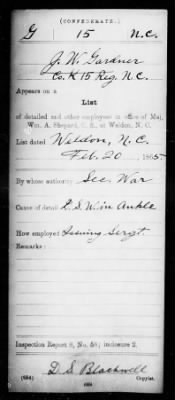 (CONFEDERATE.)
G 15 N.C.
J. W. Gardner
Co. K 15 Reg. N.C.
Appears on a
List
of detailed and other employees in office of Maj.
Wm. A. Shepard, C. S., at Weldon, N. C.
List dated Weldon, N.C.
Feb. 20, 1865.
By whose authority Sec. War
Cause of detail G.S.W. in Ankle
How employed Issuing Sergt.
Remarks:
Inspection Report 8, No. 58; inclosure 2.
D. S. Blackwell
(684) Copyist.